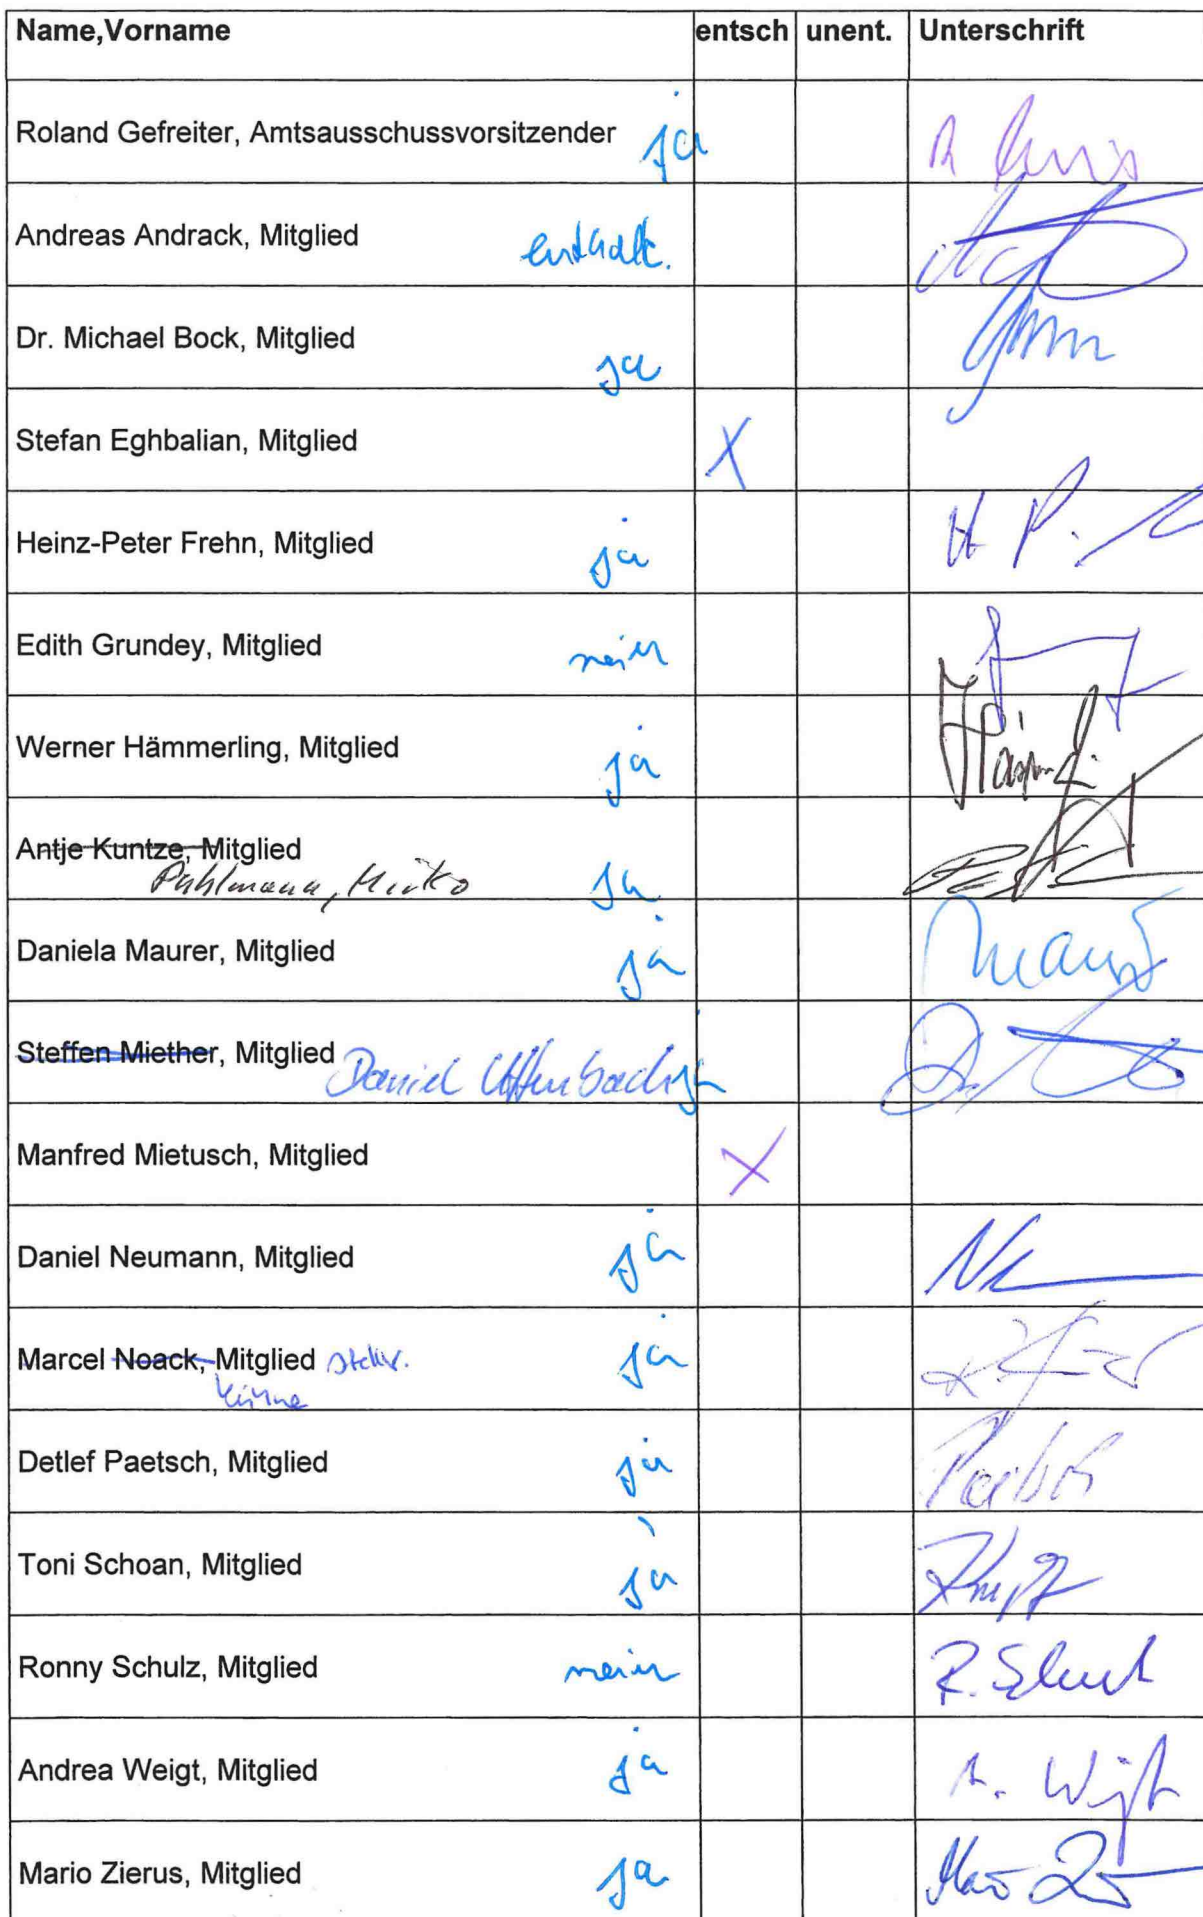 Name,Vorname entsch unent. Unterschrift
Roland Gefreiter, Amtsausschussvorsitzender ja
Andreas Andrack, Mitglied enthalt.
Dr. Michael Bock, Mitglied ja
Stefan Eghbalian, Mitglied X
Heinz-Peter Frehn, Mitglied ja H P.
Edith Grundey, Mitglied nein
Werner Hämmerling, Mitglied ja
Antje Kuntze, Mitglied
Puhlmann, Mirko ja
Daniela Maurer, Mitglied ja
Steffen Miether, Mitglied Daniel Uffenbach ja
Manfred Mietusch, Mitglied X
Daniel Neumann, Mitglied ja
Marcel Noack, Mitglied stellv. ja
Kühne
Detlef Paetsch, Mitglied ja
Toni Schoan, Mitglied ja
Ronny Schulz, Mitglied nein R. Schulz
Andrea Weigt, Mitglied ja A. Weigt
Mario Zierus, Mitglied ja